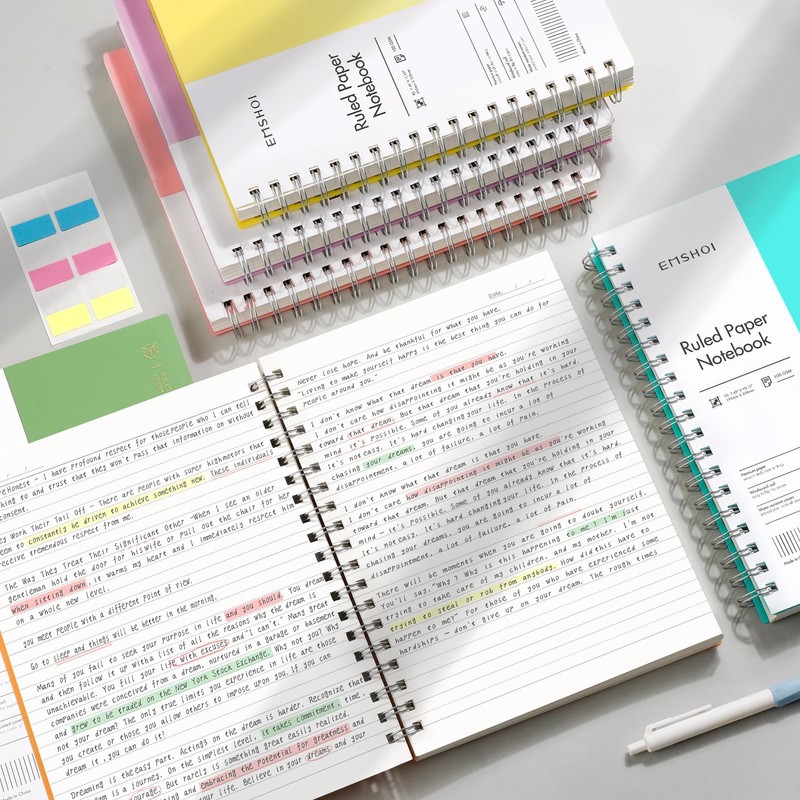 EMSHOI
Ruled Paper
Notebook
100 GSM
EMSHOI
Ruled Paper
Notebook
100 GSM
Premium paper
Made in China
Date: / /
Never lose hope. And be thankful for what you have.
"Living to make yourself happy is the best thing you can do for
people around you.
I don't know what that dream is that you have.
I don't care how disappointing it might be as you're working
toward that dream. But that dream that you're holding in your
mind it's possible. Some of you already know that it's hard.
It's not easy. it's hard changing your life. In the process of
chasing your dreams, you are going to incur a lot of
disappointment. a lot of failure, a lot of pain.
I don't know what that dream is that you have.
I don't care how disappointing it might be as you're working
toward that dream. But that dream that you're holding in your
mind - it's possible. Some of you already know that it's hard.
It's not easy. it's hard changing your life. In the process of
chasing your dreams, you are going to incur a lot of
disappointment. a lot of failure, a lot of pain.
There will be moments when you are going to doubt yourself.
You'll say, "Why? Why is this happening to me? I'm just
trying to take care of my children, and my mother. I'm not
trying to steal or rob from anybody. How did this have to
happen to me?" For those of you who have experienced some
hardships - don't give up on your dream. The rough times
Honest - I have profound respect for those people who I can tell
thing to and trust that they won't pass that information on without
consent.
Work Their Tail Off - There are people with super high motors that
seem to constantly be driven to achieve something new. These individuals
receive tremendous respect from me.
The Way They Treat Their Significant Other - When I see an older
gentleman hold the door for his wife or pull out the chair for her
when sitting down, it warms my heart and I immediately respect him
on a whole new level.
you meet people with a different point of view.
Go to sleep and things will be better in the morning.
Many of you fail to seek your purpose in life and you should. You dream
and then follow it up with a list of all the reasons why the dream is
unachievable. You fill your life with excuses and "I can't." Many great
companies were conceived from a dream, nurtured in a garage or basement
and grew to be traded on the New York Stock Exchange. Why not you? Why
not your dream? The only true limits you experience in life are those
you create or those you allow others to impose upon you. If you can
dream it, you can do it!
Dreaming is the easy part. Acting on the dream is harder. Recognize that
dream is a journey. On the simplest level, it takes commitment, time,
courage. But rarely is something great easily realized.
and embracing the potential for greatness and
life. Believe in your dreams and your
Made in China